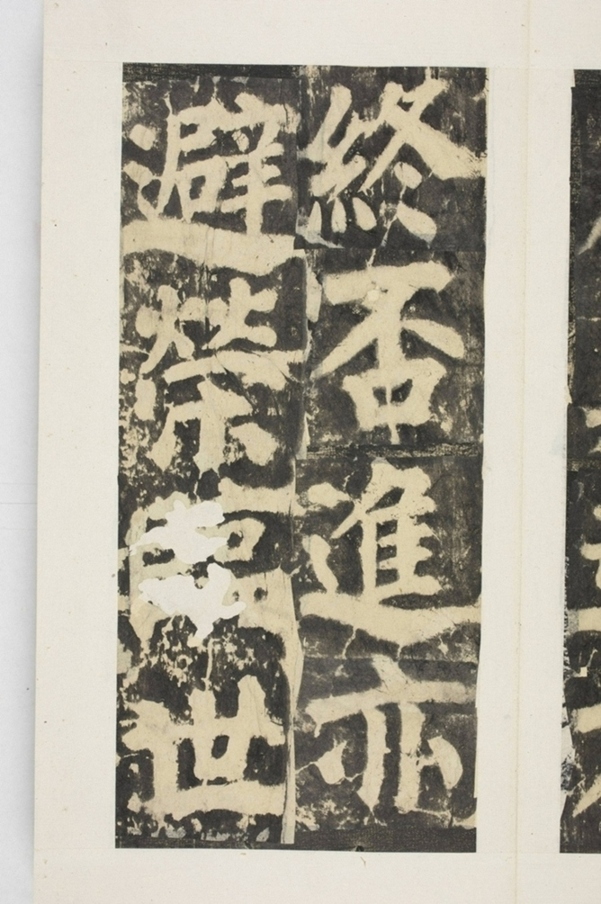 終否進亦
避榮世